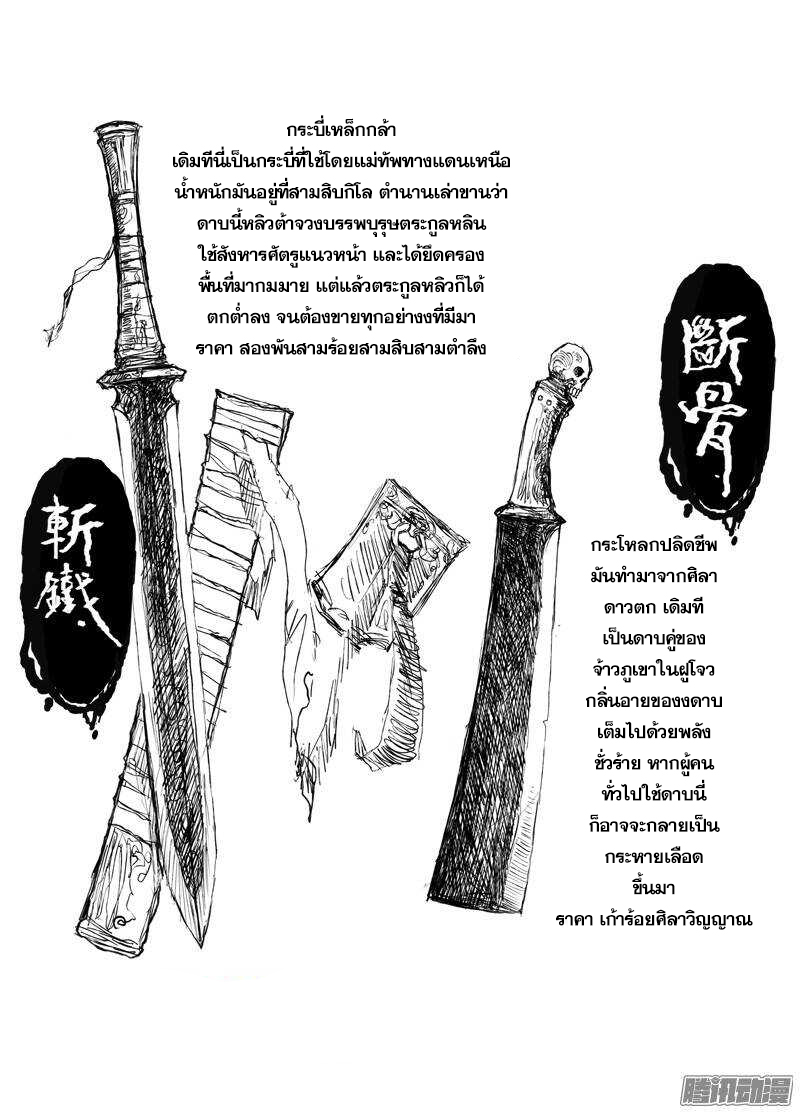 กระบี่เหล็กกล้า
เดิมทีนี่เป็นกระบี่ที่ใช้โดยแม่ทัพทางแดนเหนือ
น้ำหนักมันอยู่ที่สามสิบกิโล ตำนานเล่าขานว่า
ดาบนี้หลิวต้าจวงบรรพบุรุษตระกูลหลิน
ใช้สังหารศัตรูแนวหน้า และได้ยึดครอง
พื้นที่มากมมาย แต่แล้วตระกูลหลิวก็ได้
ตกต่ำลง จนต้องขายทุกอย่างงที่มีมา
ราคา สองพันสามร้อยสามสิบสามตำลึง
斬鐵
斷骨
กระโหลกปลิดชีพ
มันทำมาจากศิลา
ดาวตก เดิมที
เป็นดาบคู่ของ
จ้าวภูเขาในฝูโจว
กลิ่นอายของงดาบ
เต็มไปด้วยพลัง
ชั่วร้าย หากผู้คน
ทั่วไปใช้ดาบนี่
ก็อาจจะกลายเป็น
กระหายเลือด
ขึ้นมา
ราคา เก้าร้อยศิลาวิญญาณ
腾讯动漫